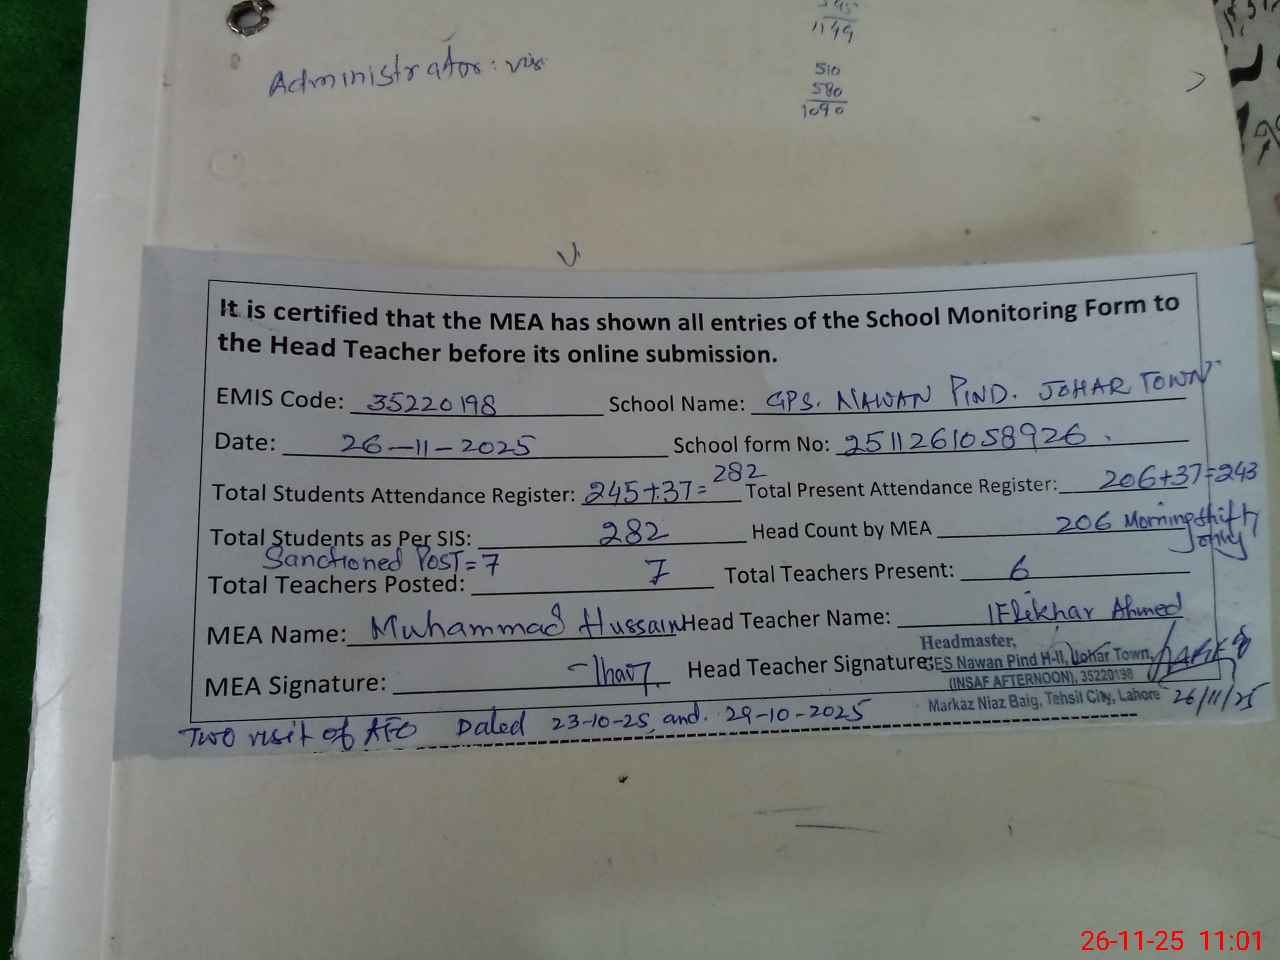 1199
Administrator: vis
510
580
1090
It is certified that the MEA has shown all entries of the School Monitoring Form to
the Head Teacher before its online submission.
EMIS Code: 35220198 School Name: GPS. NAWAN PIND. JOHAR TOWN
Date: 26-11-2025 School form No: 2511261058926.
Total Students Attendance Register: 245+37=282 Total Present Attendance Register: 206+37=243
Total Students as Per SIS: 282 Head Count by MEA 206 Morning shift only
Sanctioned Post=7
Total Teachers Posted: 7 Total Teachers Present: 6
MEA Name: Muhammad Hussain Head Teacher Name: Iftikhar Ahmed
MEA Signature: Head Teacher Signature:
Headmaster,
GES Nawan Pind H-II, Johar Town,
(INSAF AFTERNOON), 35220198
Markaz Niaz Baig, Tehsil City, Lahore
26/11/25
Two visit of AEO Dated 23-10-25, and. 29-10-2025
26-11-25 11:01